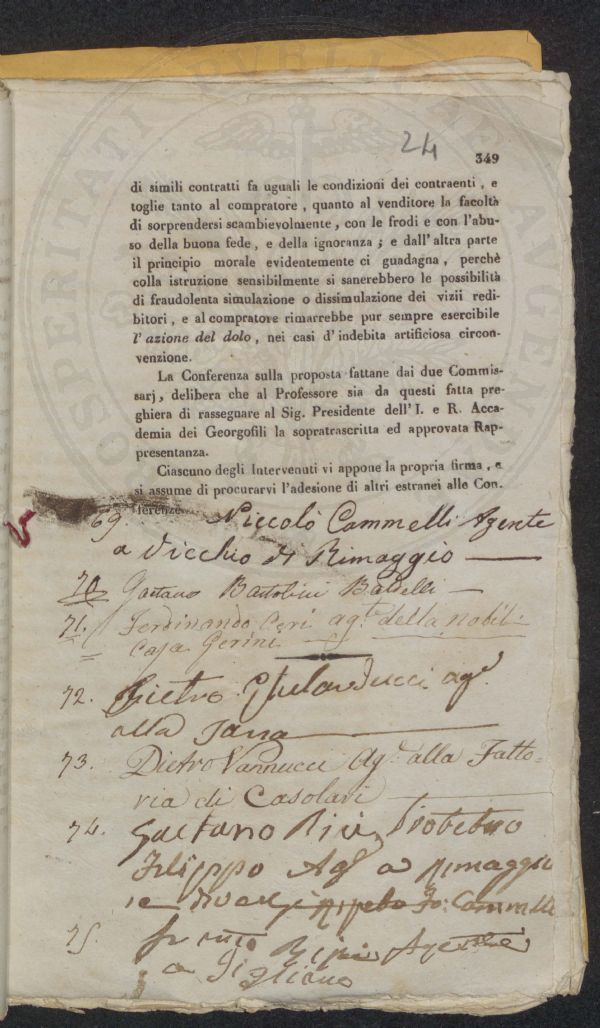 24
349
di simili contratti fa uguali le condizioni dei contraenti, e
toglie tanto al compratore, quanto al venditore la facoltà
di sorprendersi scambievolmente, con le frodi e con l'abu-
so della buona fede, e della ignoranza; e dall'altra parte
il principio morale evidentemente ci guadagna, perchè
colla istruzione sensibilmente si sanerebbero le possibilità
di fraudolenta simulazione o dissimulazione dei vizii redi-
bitori, e al compratore rimarrebbe pur sempre esercibile
l'azione del dolo, nei casi d'indebita artificiosa circon-
venzione.
La Conferenza sulla proposta fattane dai due Commis-
sarj, delibera che al Professore sia da questi fatta pre-
ghiera di rassegnare al Sig. Presidente dell'I. e R. Acca-
demia dei Georgofili la sopratrascritta ed approvata Rap-
presentanza.
Ciascuno degli Intervenuti vi appone la propria firma, e
si assume di procurarvi l'adesione di altri estranei alle Con-
ferenze
69. Niccolò Cammelli Agente
a Vicchio di Rimaggio
70 Gaetano Bartolini Baldelli
71. Ferdinando Ceri agte della nobil:
Casa Gerini
72. Pietro Ghelarducci age
alla Tana
73. Pietro Vannucci Age alla Fatto=
ria di Casolari
74. Gaetano
Filippo Age a Rimaggio
Cammelli
75. Agente
a